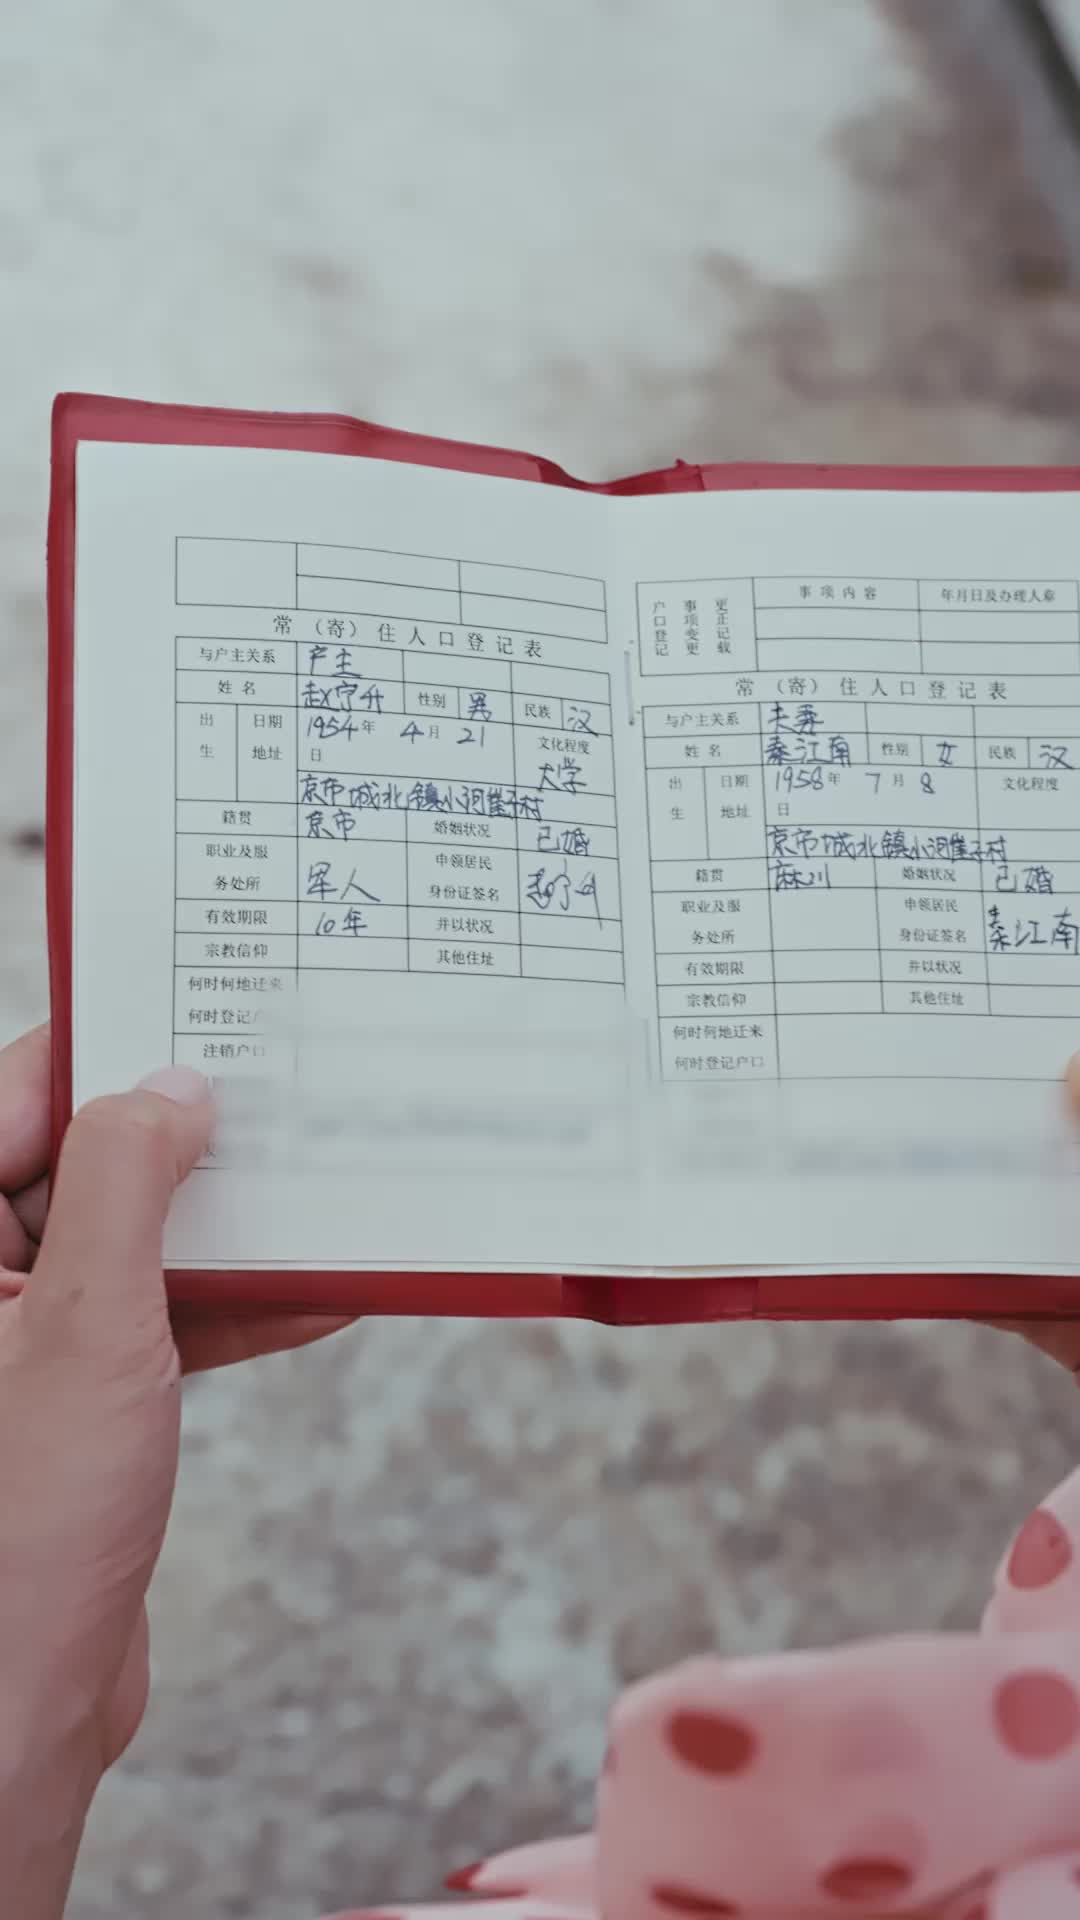 常（寄）住人口登记表
与户主关系 户主
姓名 赵宁升 性别 男 民族 汉
出生 日期 1954年 4月 21日 文化程度 大学
地址 京市城北镇小河崔子村
籍贯 京市 婚姻状况 已婚
职业及服务处所 军人 申领居民身份证签名
有效期限 10年 并以状况
宗教信仰 其他住址
何时何地迁来
何时登记户
注销户口
户口登记事项变更更正记载 事项内容 年月日及办理人章
常（寄）住人口登记表
与户主关系 夫妻
姓名 秦江南 性别 女 民族 汉
出生 日期 1958年 7月 8日 文化程度
地址 京市城北镇小河崔子村
籍贯 麻川 婚姻状况 已婚
职业及服务处所 申领居民身份证签名 秦江南
有效期限 并以状况
宗教信仰 其他住址
何时何地迁来
何时登记户口